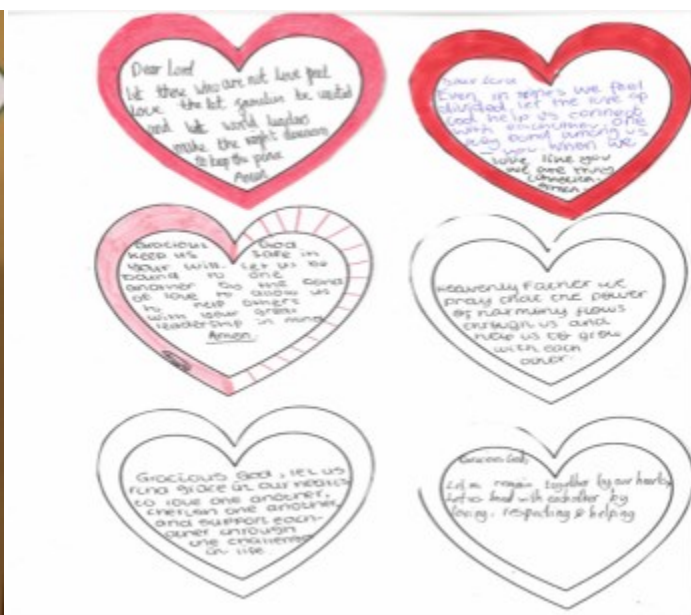 Dear Lord
let those who are not love feel
love. the let families be united
and let world leaders
make the right decisions
to keep the peace
Amen
Dear Lord
Even in times we feel
divided, let the love of
God help us connect
with eachother, one
body bond among us
you when we
love like you
we are truly
Amen.
Gracious God
keep us safe in
your will. Let us be
bound to one
another by the bond
of love to allow us
to help others
with your great
leadership in mind
Amen.
Heavenly Father we
pray that the power
of harmony flows
through us and
help us to grow
with each
other.
Gracious God, let us
find grace in our hearts
to love one another,
cherish one another
and support each-
other through
the challenges
in life.
Gracious God,
Let us remain together by our hearts,
Let us bond with eachother by
loving, respecting & helping